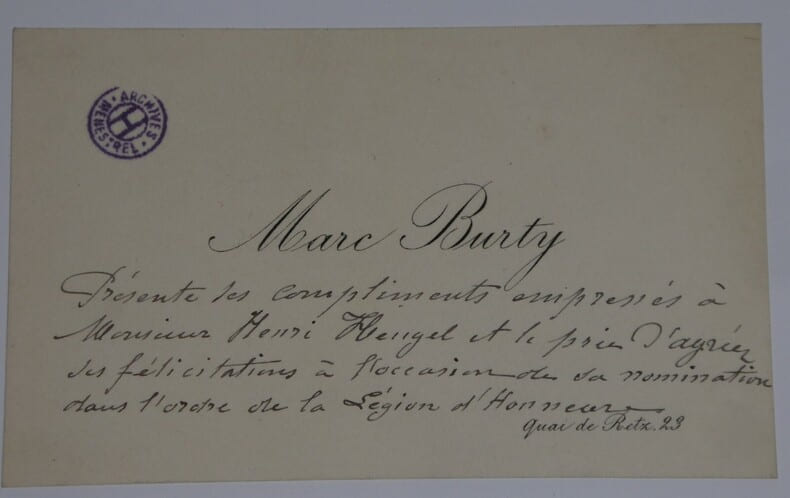 ARCHIVES
MENESTREL
H
Marc Burty
Présente ses compliments empressés à
Monsieur Henri Heugel et le prie d'agréer
ses félicitations à l'occasion de sa nomination
dans l'ordre de la Légion d'Honneur
Quai de Retz. 23